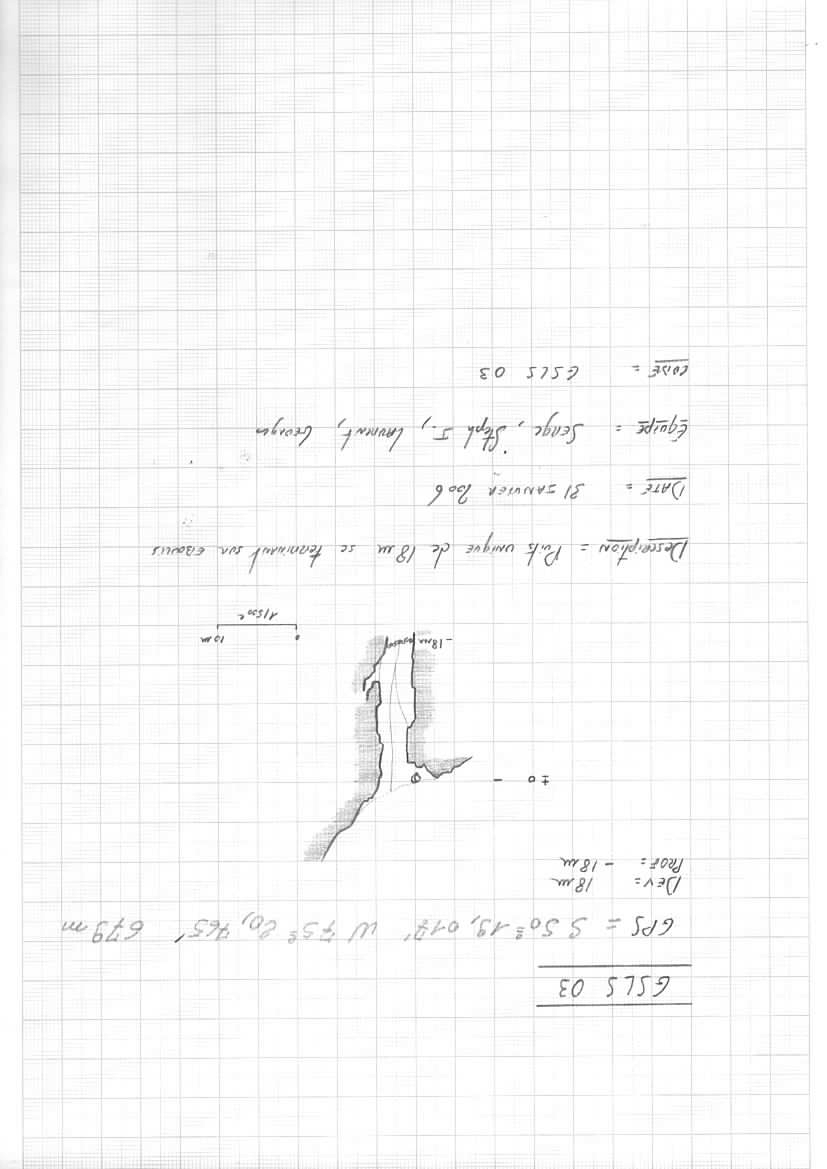 GSLS 03
GPS = S 50° 19, 017' W 75° 20, 765' 679 m
DEV = 18 m
PROF = - 18 m
± 0 -
- 18 m
0 10 m
1/500e
DESCRIPTION = Puits unique de 18 m se terminant sur EBOULIS
DATE = 31 JANVIER 2006
EQUIPE = Serge, Steph I., LAURENT, Georges
CODE = GSLS 03